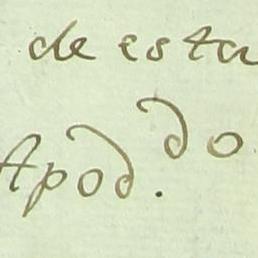 de esta
Apod.do